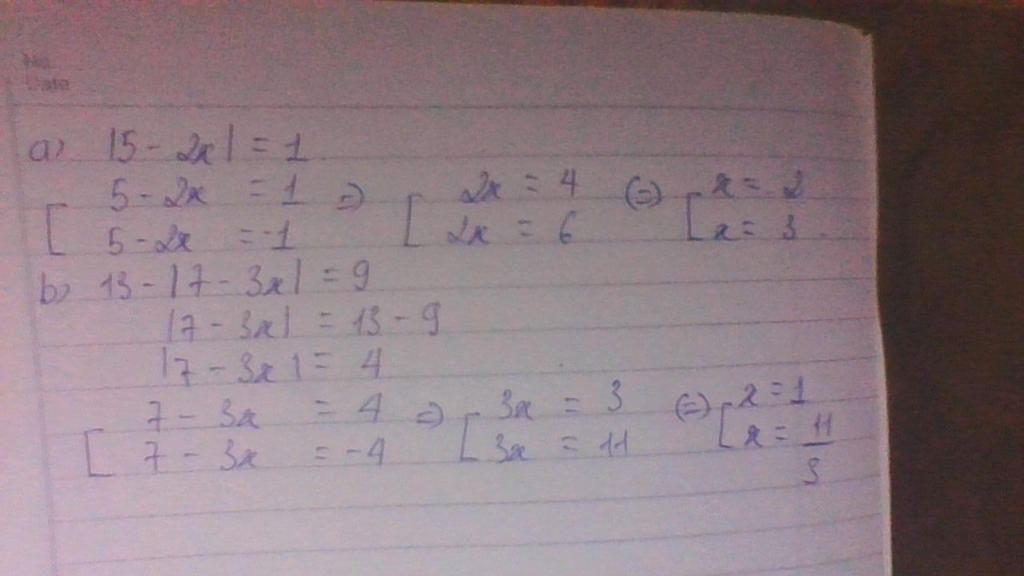 No.
Date
a) |5 - 2x| = 1
[ 5 - 2x = 1 => [ 2x = 4 (=) [ x = 2
5 - 2x = -1 2x = 6 x = 3.
b) 13 - |7 - 3x| = 9
|7 - 3x| = 13 - 9
|7 - 3x| = 4
[ 7 - 3x = 4 => [ 3x = 3 (=) [ x = 1
7 - 3x = -4 3x = 11 x = 11/3